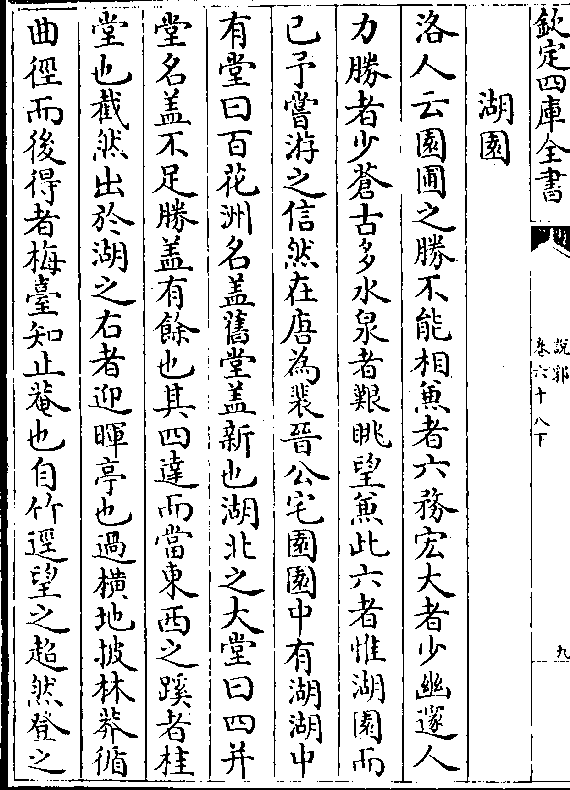 欽定四庫全書
說郛
卷六十八下
九
湖園
洛人云園圃之勝不能相兼者六務宏大者少幽邃人
力勝者少蒼古多水泉者艱眺望兼此六者惟湖園而
已予嘗游之信然在唐為裴晉公宅園園中有湖湖中
有堂曰百花洲名盖舊堂盖新也湖北之大堂曰四并
堂名盖不足勝盖有餘也其四達而當東西之蹊者桂
堂也截然出於湖之右者迎暉亭也過橫地披林莽循
曲徑而後得者梅臺知止菴也自竹逕望之超然登之